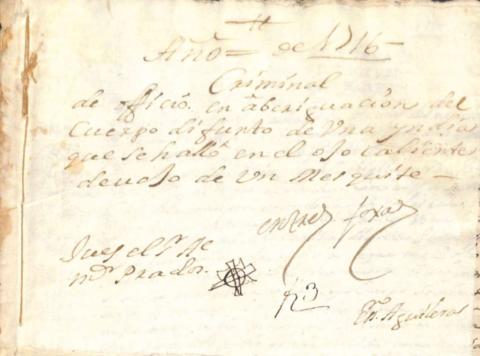 Año de 1716
Criminal
de officio en aberiguacion del
Cuerpo difunto de Vna yndia
que se halló en el ojo caliente
devajo de Un Mesquite
en tres foxas
Jues el Sr
Prador.
Aguilera